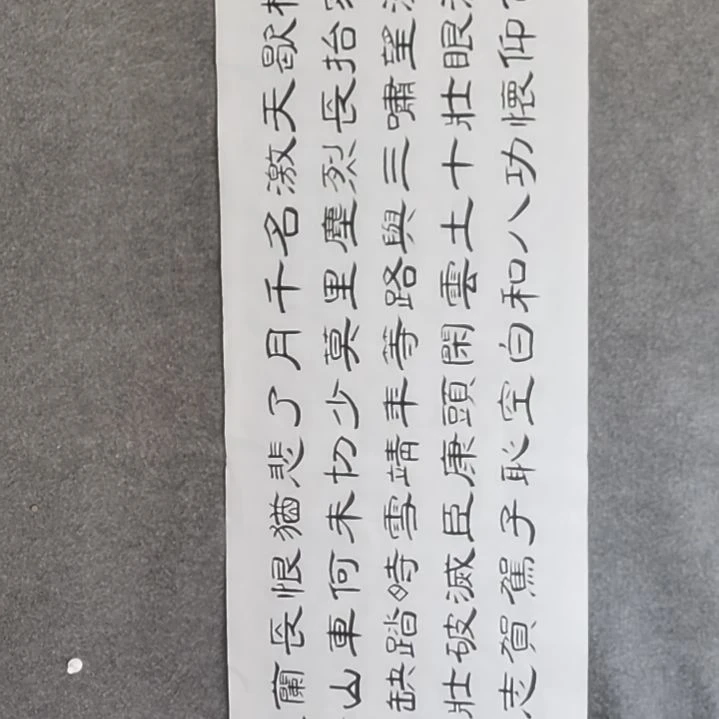 歇抬望眼仰
天長嘯壯懷
激烈三十功
名塵與土八
千里路雲和
月莫等閑白
了少年頭空
悲切靖康恥
猶未雪臣子
恨何時滅駕
長車踏破賀
蘭山缺壯志